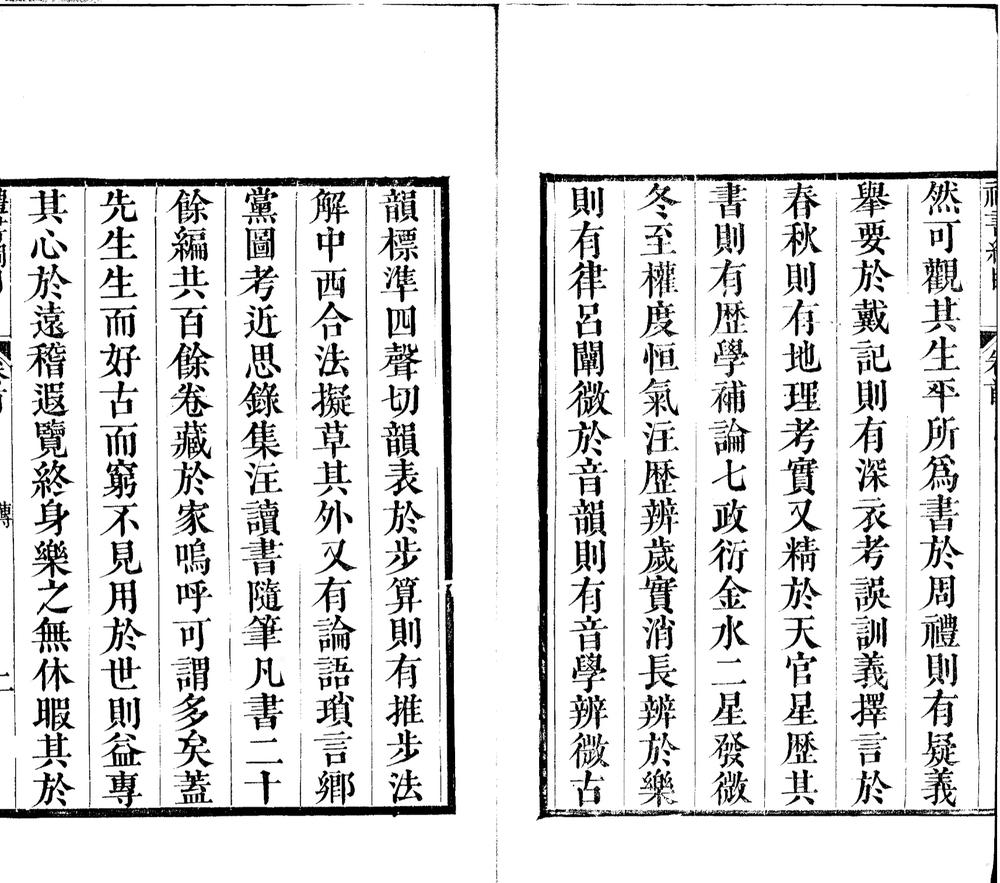 然可觀其生平所爲書於周禮則有疑義
舉要於戴記則有深衣考誤訓義擇言於
春秋則有地理考實又精於天官星歷其
書則有歷學補論七政衍金水二星發微
冬至權度恒氣注歷辨歲實消長辨於樂
則有律呂闡微於音韻則有音學辨微古
韻標準四聲切韻表於步算則有推步法
解中西合法擬草其外又有論語瑣言鄉
黨圖考近思錄集注讀書隨筆凡書二十
餘編共百餘卷藏於家嗚呼可謂多矣蓋
先生生而好古而窮不見用於世則益專
其心於遠稽遐覽終身樂之無休暇其於
傳
二